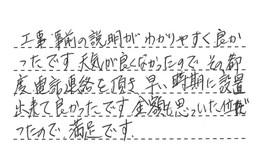 工事事前の説明がわかりやすく良か
ったです。天気が良くなかったので、その都
度電話連絡を頂き、早い時期に設置
出来て良かったです。金額も思っていた位だ
ったので、満足です。